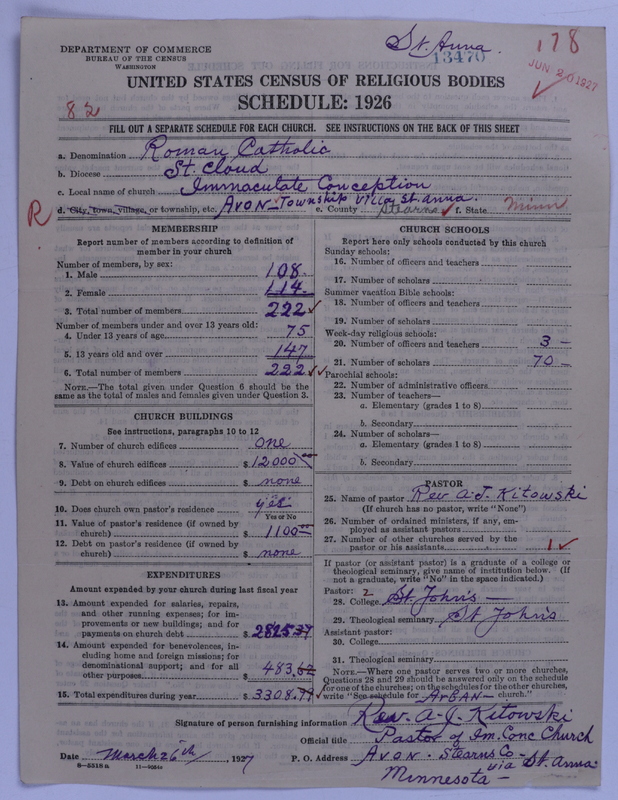 St. Anna.
178
13470
JUN 20 1927
DEPARTMENT OF COMMERCE
BUREAU OF THE CENSUS
WASHINGTON
UNITED STATES CENSUS OF RELIGIOUS BODIES
SCHEDULE: 1926
82
FILL OUT A SEPARATE SCHEDULE FOR EACH CHURCH. SEE INSTRUCTIONS ON THE BACK OF THIS SHEET
a. Denomination Roman Catholic
b. Diocese St. Cloud
c. Local name of church Immaculate Conception
R
d. City, town, village, or township, etc. Avon Township Villa St. Anna. e. County Stearns f. State Minn
MEMBERSHIP
Report number of members according to definition of member in your church
Number of members, by sex:
1. Male 108
2. Female 114
3. Total number of members 222
Number of members under and over 13 years old:
4. Under 13 years of age 75
5. 13 years old and over 147
6. Total number of members 222
NOTE.—The total given under Question 6 should be the same as the total of males and females given under Question 3.
CHURCH BUILDINGS
See instructions, paragraphs 10 to 12
7. Number of church edifices one
8. Value of church edifices $12000
9. Debt on church edifices $ none
10. Does church own pastor's residence? yes
Yes or No
11. Value of pastor's residence (if owned by church) $ 1100
12. Debt on pastor's residence (if owned by church) $ none
EXPENDITURES
Amount expended by your church during last fiscal year
13. Amount expended for salaries, repairs, and other running expenses; for improvements or new buildings; and for payments on church debt $ 2825.37
14. Amount expended for benevolences, including home and foreign missions; for denominational support; and for all other purposes $ 483.62
15. Total expenditures during year $ 3308.99
CHURCH SCHOOLS
Report here only schools conducted by this church
Sunday schools:
16. Number of officers and teachers
17. Number of scholars
Summer vacation Bible schools:
18. Number of officers and teachers
19. Number of scholars
Week-day religious schools:
20. Number of officers and teachers 3 —
21. Number of scholars 70 —
Parochial schools:
22. Number of administrative officers
23. Number of teachers—
a. Elementary (grades 1 to 8)
b. Secondary
24. Number of scholars—
a. Elementary (grades 1 to 8)
b. Secondary
PASTOR
25. Name of pastor Rev A. J. Kitowski
(If church has no pastor, write "None")
26. Number of ordained ministers, if any, employed as assistant pastors
27. Number of other churches served by the pastor or his assistants 1
If pastor (or assistant pastor) is a graduate of a college or theological seminary, give name of institution below. (If not a graduate, write "No" in the space indicated.)
Pastor: 2
28. College St. John's —
29. Theological seminary St John's
Assistant pastor:
30. College
31. Theological seminary
NOTE.—Where one pastor serves two or more churches, Questions 28 and 29 should be answered only on the schedule for one of the churches; on the schedules for the other churches, write "See schedule for Arban church."
Signature of person furnishing information Rev. A-J. Kitowski
Official title Pastor of Im. Conc Church
Date March 26th, 1927 P. O. Address Avon - Stearns Co — via St. Anna
Minnesota —
8—5518a 11—9554c